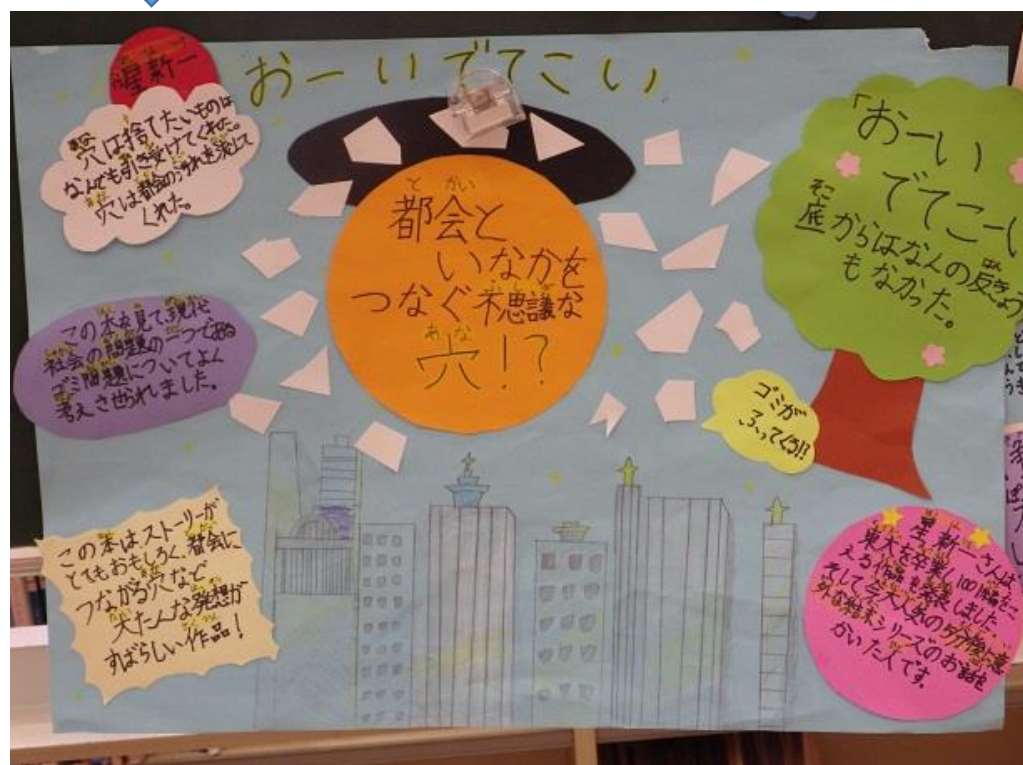 おーいでてこい
星新一
穴は捨てたいものは
なんでも引き受けてくれた。
穴は都会の汚れを流して
くれた。
都会と
とかい
いなかを
つなぐ不思議な
ふしぎ
穴!?
あな
「おーい
でてこーい
底からはなんの反きょう
そこ
はん
もなかった。
この本を見て現代
社会の問題の一つである
ゴミ問題についてよく
考えさせられました。
ゴミが
ふってくる!?
この本はストーリーが
とてもおもしろく、都会に
つながる穴など
大たんな発想が
すばらしい作品!
星新一さんは
東大を卒業、1001編をこ
える作品を発表しました。
そして今大人気の5分後に意
外な結末シリーズのお話を
かいた人です。